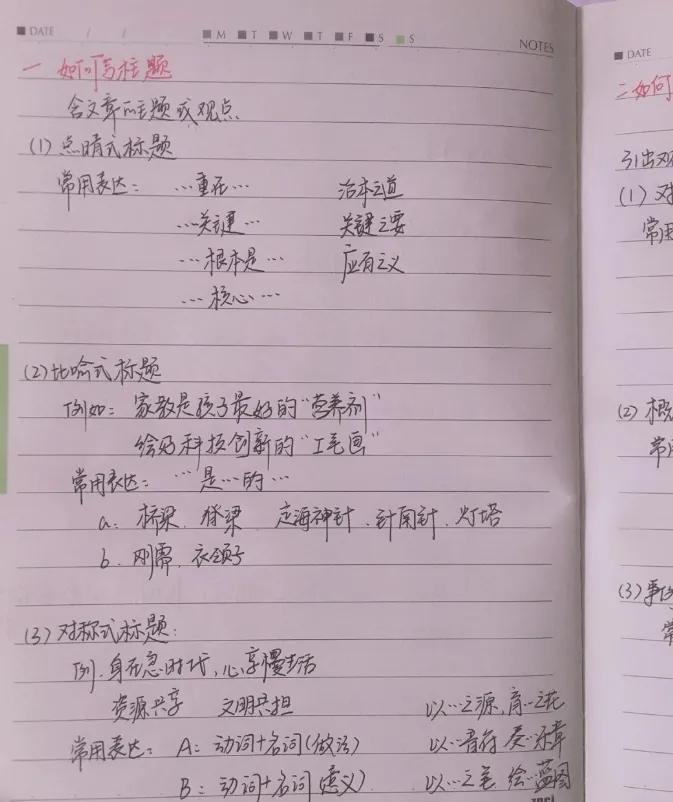 DATE / /
M T W T F S S
NOTES
一 如何写标题
含文章的主题或观点.
(1) 点睛式标题
常用表达： …重在… 治本之道
…关键… 关键之要
…根本是… 应有之义
…核心…
(2) 比喻式标题
例如： 家教是孩子最好的"营养剂"
绘好科技创新的"工笔画"
常用表达： …是…的…
a. 桥梁、脊梁 定海神针、针南针、灯塔
b. 刚需、衣领子
(3) 对称式标题：
例. 身在急时代，心享慢生活
资源共享 文明共担 以…之源，育…之花
常用表达： A：动词+名词(做法) 以…音符 奏…乐章
B：动词+名词(意义) 以…之笔 绘…蓝图
DATE
二 如何
引出观
(1) 对
常用
(2) 概
常用
(3) 事例
常